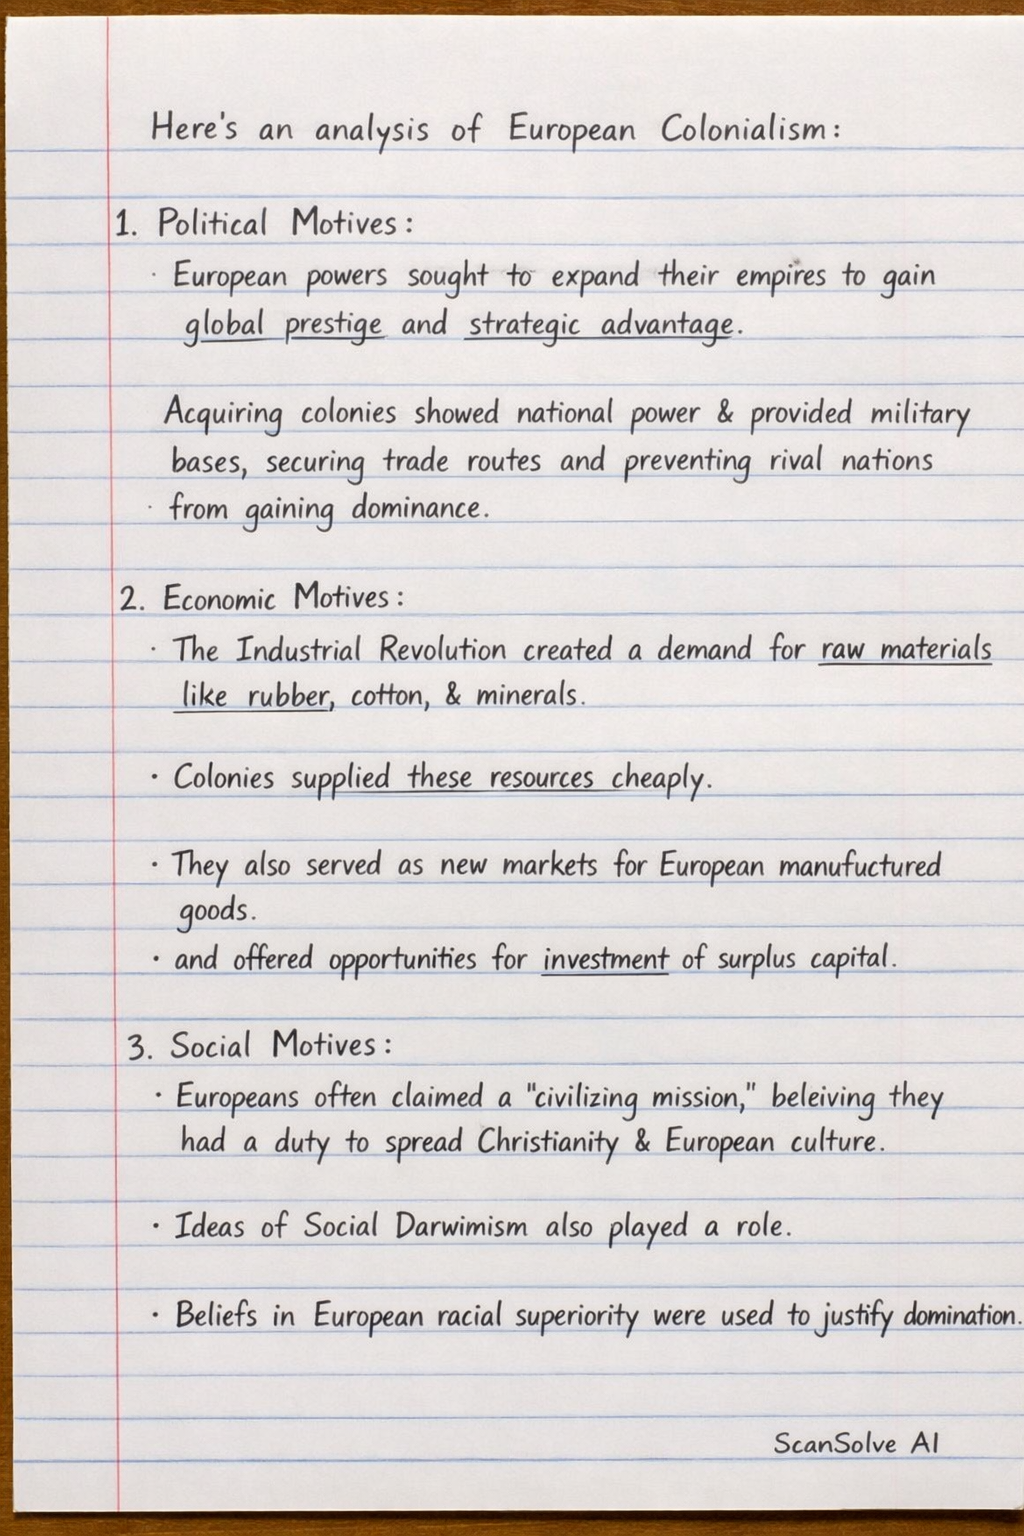 Here's an analysis of European Colonialism:
1. Political Motives:
· European powers sought to expand their empires to gain
global prestige and strategic advantage.
Acquiring colonies showed national power & provided military
bases, securing trade routes and preventing rival nations
· from gaining dominance.
2. Economic Motives:
· The Industrial Revolution created a demand for raw materials
like rubber, cotton, & minerals.
· Colonies supplied these resources cheaply.
· They also served as new markets for European manufuctured
goods.
· and offered opportunities for investment of surplus capital.
3. Social Motives:
· Europeans often claimed a "civilizing mission," beleiving they
had a duty to spread Christianity & European culture.
· Ideas of Social Darwimism also played a role.
· Beliefs in European racial superiority were used to justify domination.
ScanSolve AI